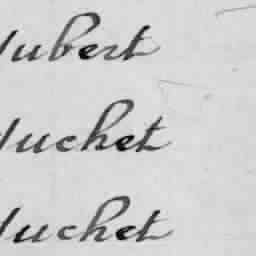 Hubert
Huchet
Huchet